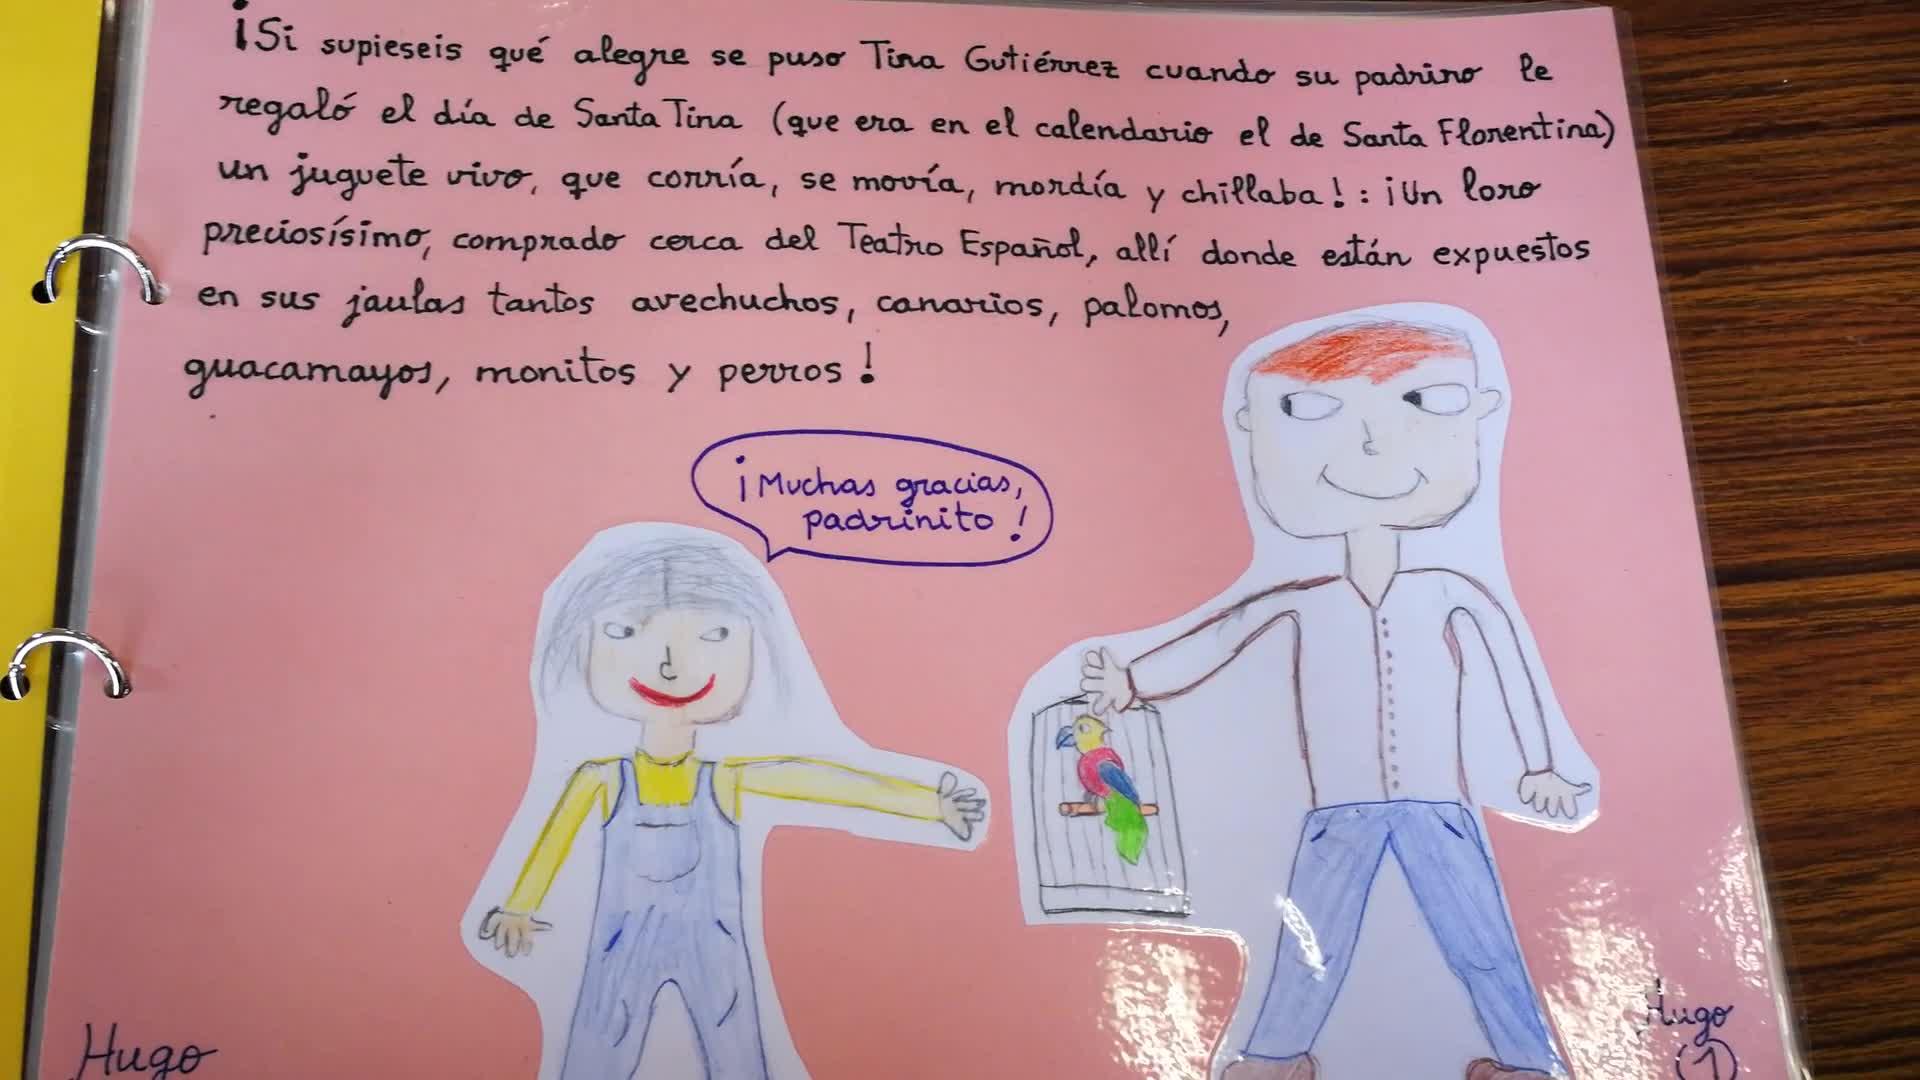 ¡Si supieseis qué alegre se puso Tina Gutiérrez cuando su padrino le
regaló el día de Santa Tina (que era en el calendario el de Santa Florentina)
un juguete vivo, que corría, se movía, mordía y chillaba! : ¡Un loro
preciosísimo, comprado cerca del Teatro Español, allí donde están expuestos
en sus jaulas tantos avechuchos, canarios, palomos,
guacamayos, monitos y perros!
¡Muchas gracias,
padrinito!
Hugo
Hugo
1